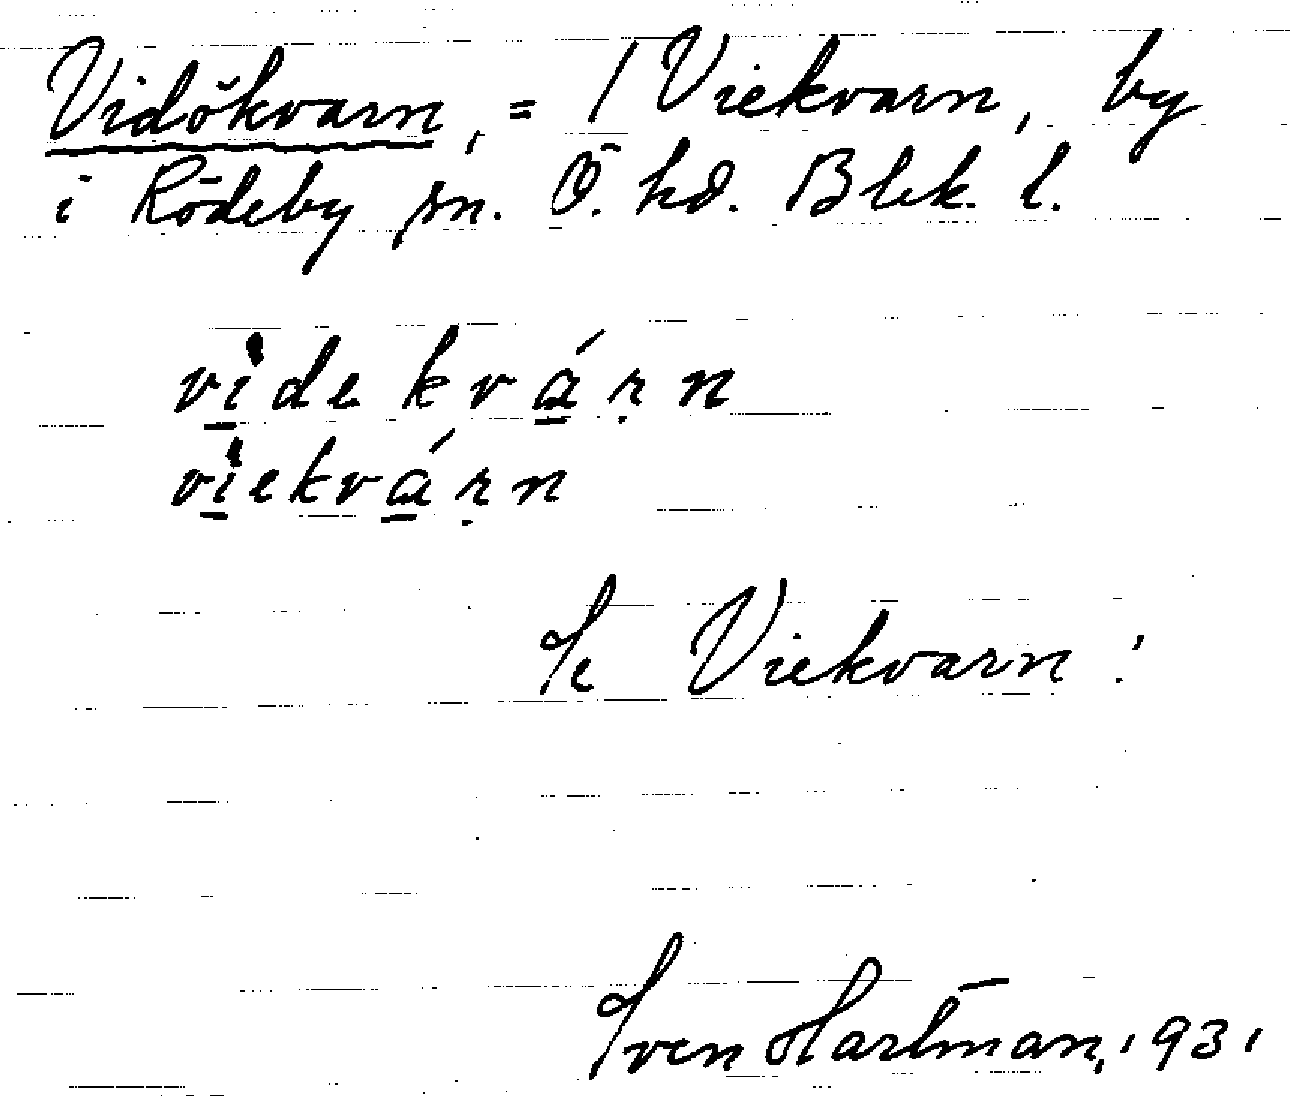 Vidökvarn, = / Viekvarn, by
i Rödeby sn. Ö. hd. Blek. l.
vi̲dekvá̲ṛn
vi̲ekvá̲ṛn
Se Viekvarn!
Sven Hartman, 1931